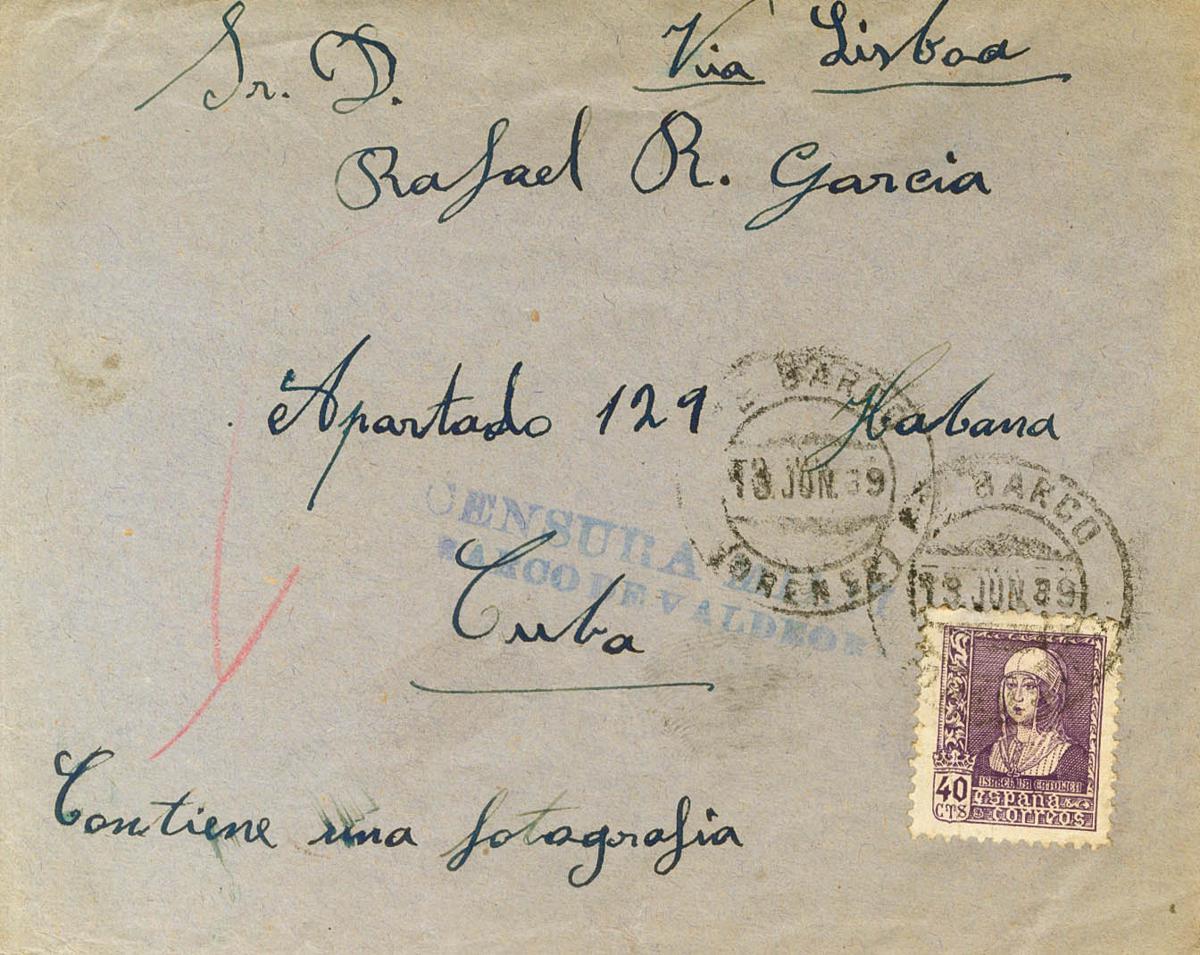 Sr. D.
Via Lisboa
Rafael R. Garcia
Apartado 129 Habana
Cuba
Contiene una fotografia
CENSURA
BARCO DE VALDEOR
BARCO
JUN.39
ORENSE
BARCO
JUN.39
40
CTS
ISABEL LA CATOLICA
ESPAÑA
CORREOS